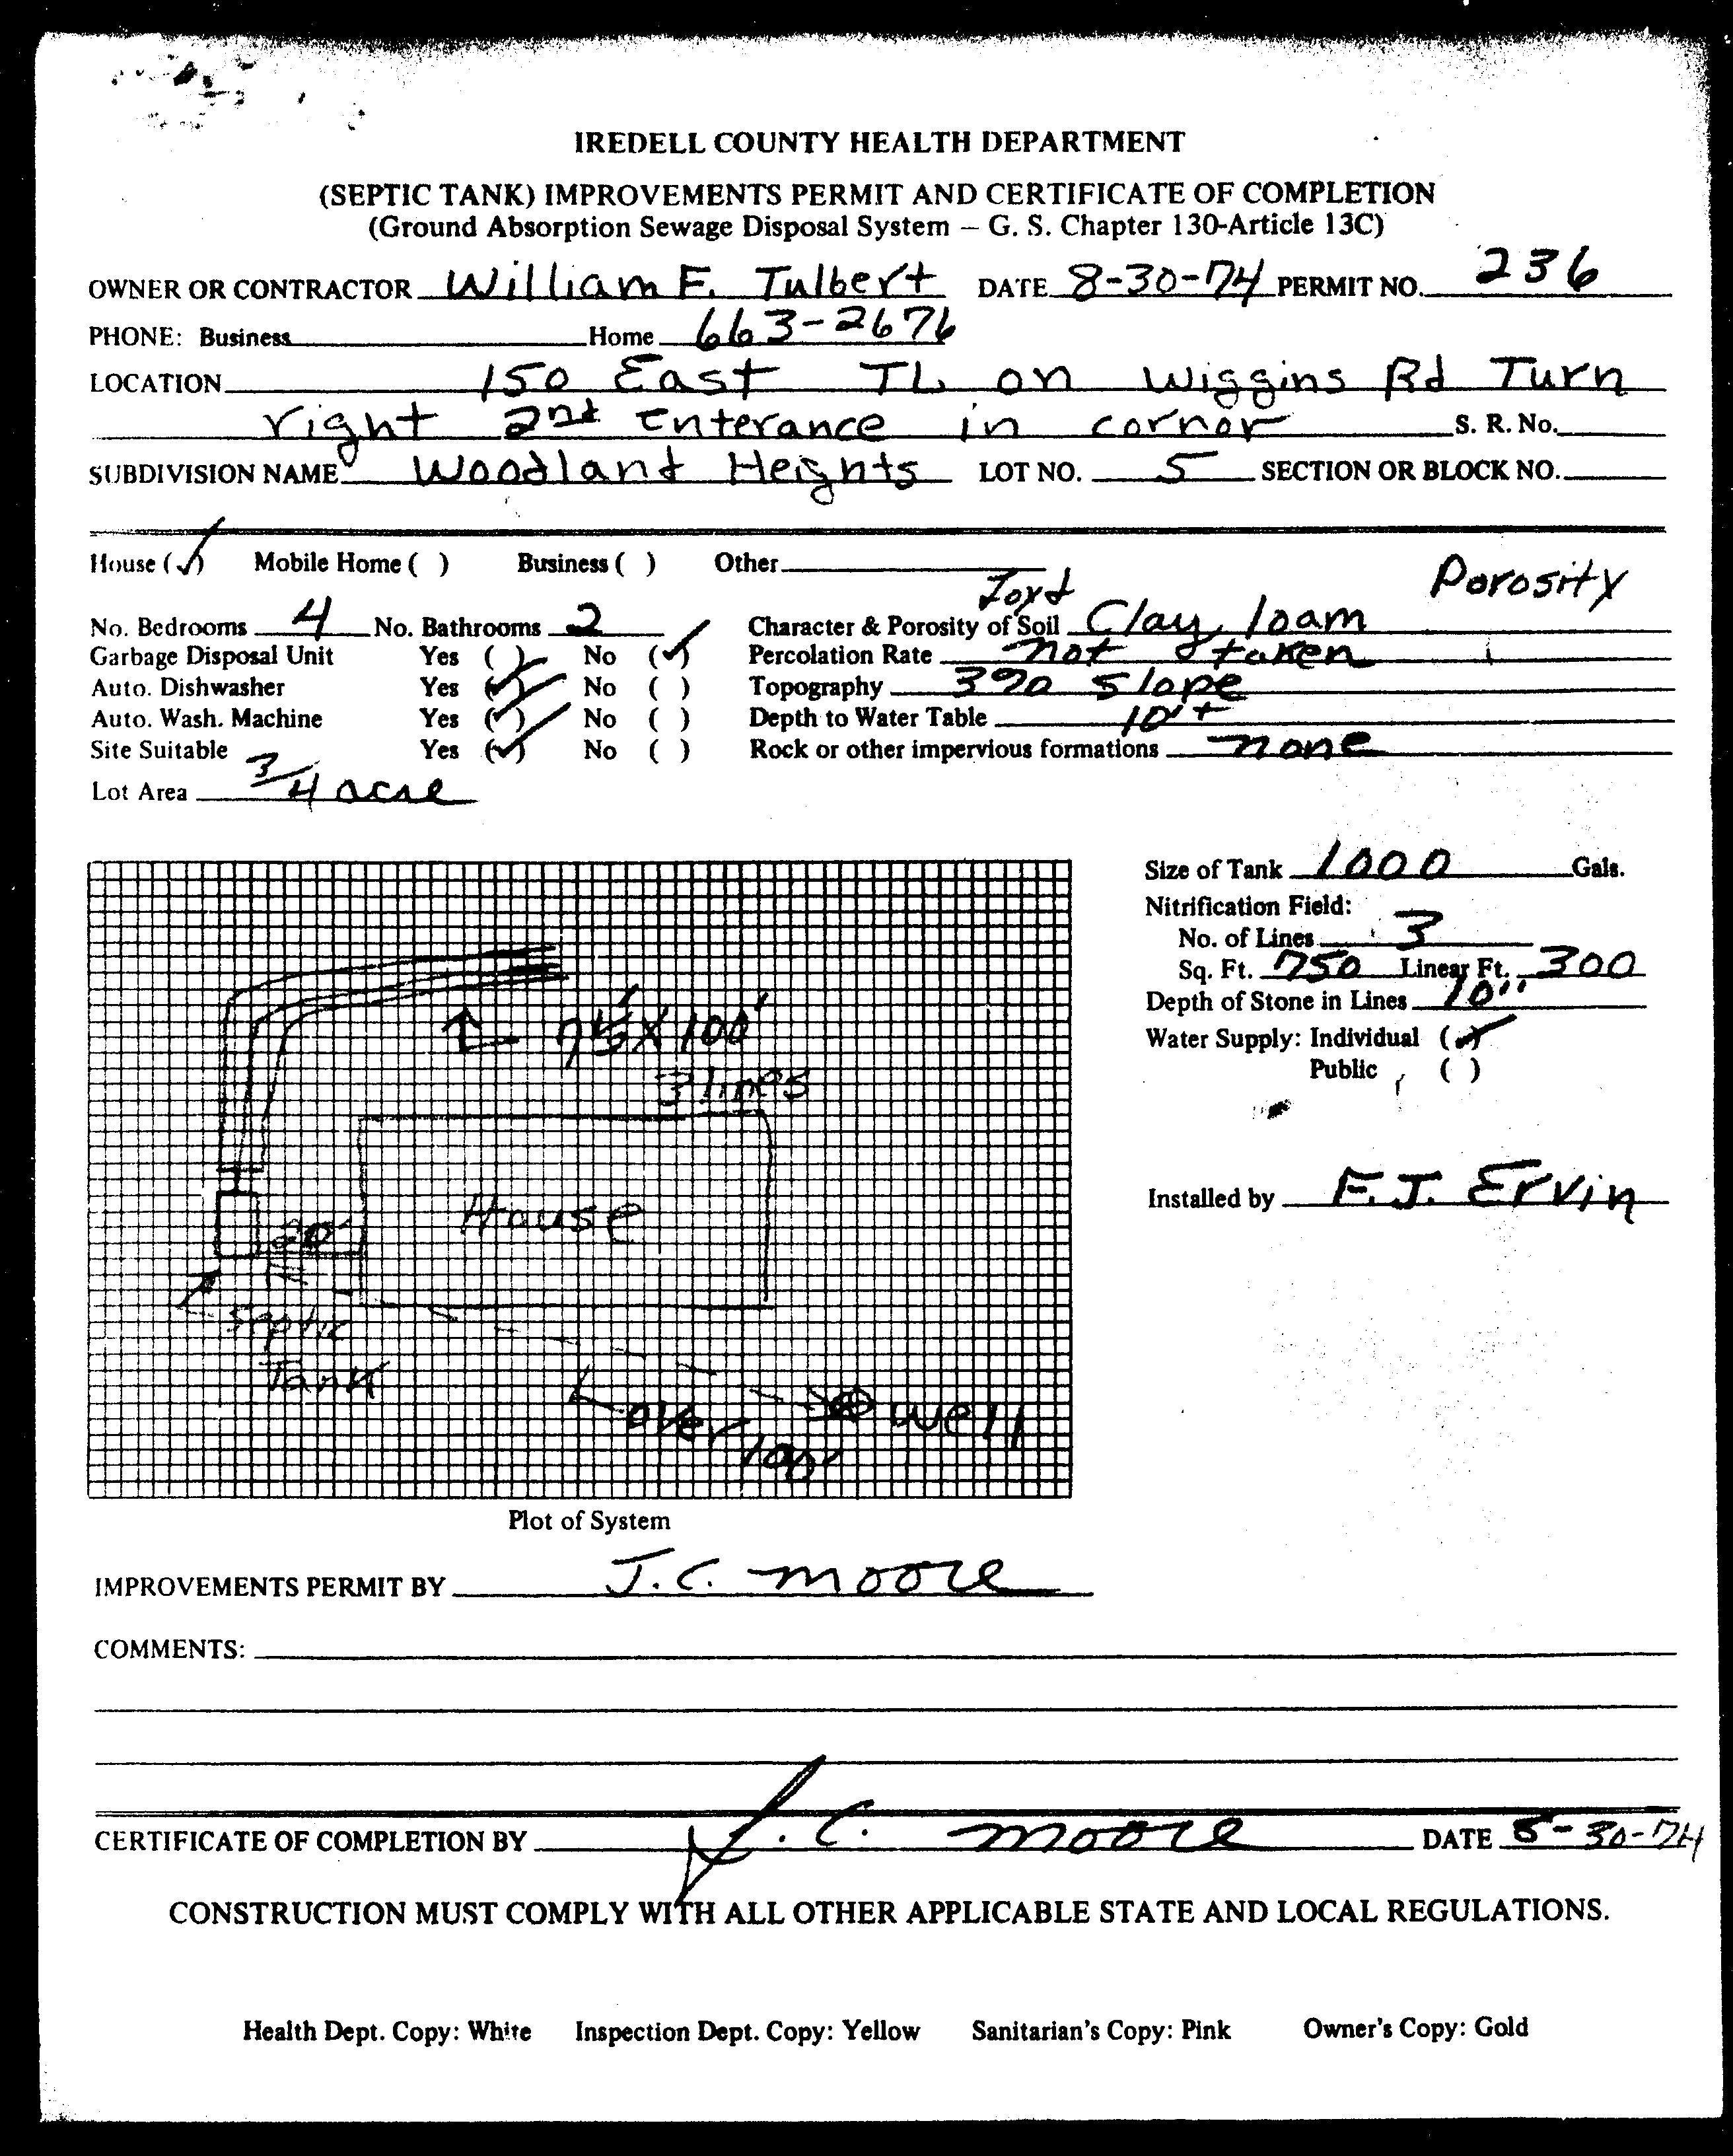 IREDELL COUNTY HEALTH DEPARTMENT
(SEPTIC TANK) IMPROVEMENTS PERMIT AND CERTIFICATE OF COMPLETION
(Ground Absorption Sewage Disposal System – G. S. Chapter 130-Article 13C)
OWNER OR CONTRACTOR William F. Tulbert DATE 8-30-74 PERMIT NO. 236
PHONE: Business Home 663-2676
LOCATION 150 East TL on Wiggins Rd Turn
right 2nd Enterance in cornor S. R. No.
SUBDIVISION NAME Woodland Heights LOT NO. 5 SECTION OR BLOCK NO.
House (✓) Mobile Home ( ) Business ( ) Other
Porosity
No. Bedrooms 4 No. Bathrooms 2 Character & Porosity of Soil Clay loam
Garbage Disposal Unit Yes ( ) No (✓) Percolation Rate not taken
Auto. Dishwasher Yes (✓) No ( ) Topography 3% Slope
Auto. Wash. Machine Yes (✓) No ( ) Depth to Water Table 10'+
Site Suitable Yes (✓) No ( ) Rock or other impervious formations none
Lot Area 3/4 acre
Size of Tank 1000 Gals.
Nitrification Field:
No. of Lines 3
Sq. Ft. 750 Linear Ft. 300
Depth of Stone in Lines 10''
Water Supply: Individual (✓)
Public ( )
Installed by F. J. Ervin
X 100'
3 lines
House
20'
Septic
Tank
over
100'
well
Plot of System
IMPROVEMENTS PERMIT BY J. C. Moore
COMMENTS:
CERTIFICATE OF COMPLETION BY J. C. Moore DATE 8-30-74
CONSTRUCTION MUST COMPLY WITH ALL OTHER APPLICABLE STATE AND LOCAL REGULATIONS.
Health Dept. Copy: White Inspection Dept. Copy: Yellow Sanitarian's Copy: Pink Owner's Copy: Gold